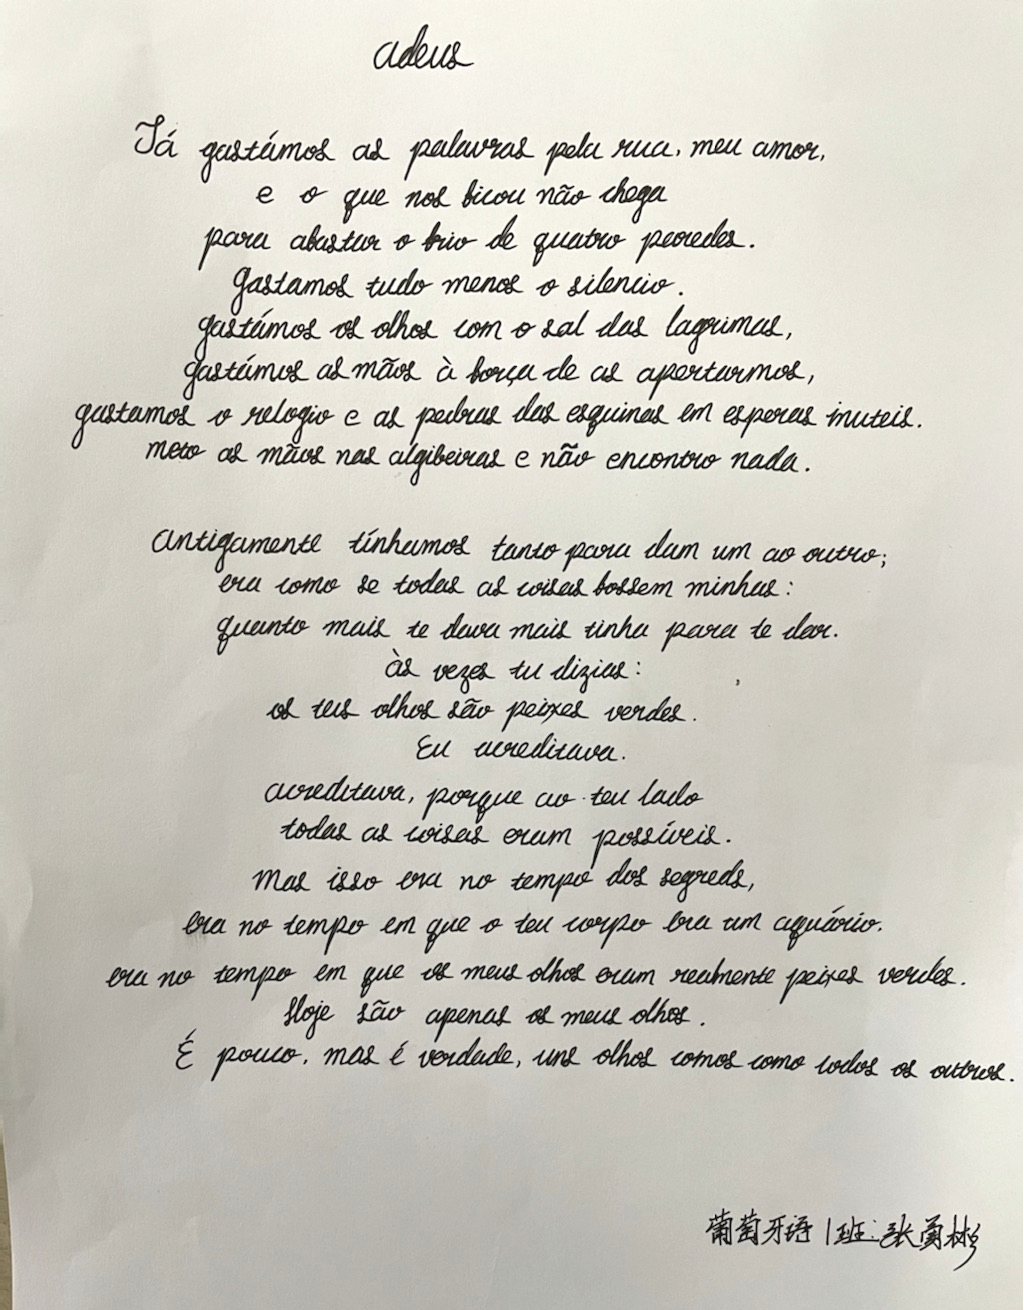 adeus
Já gastámos as palavras pela rua, meu amor,
e o que nos bicou não chega
para abastar o brio de quatro paredes.
gastamos tudo menos o silencio.
gastámos os olhos com o sal das lagrimas,
gastámos as mãos à borça de as apertarmos,
gastamos o relogio e as pedras das esquinas em esperas inuteis.
meto as mãos nas algibeiras e não encontro nada.
antigamente tínhamos tanto para dam um ao outro;
era como se todas as coisas bossem minhas:
quanto mais te dava mais tinha para te dar.
às vezes tu dizias:
os teus olhos são peixes verdes.
Eu acreditava.
acreditava, porque ao teu lado
todas as coisas eram possíveis.
Mas isso era no tempo dos segreds,
era no tempo em que o teu corpo era um aquário.
era no tempo em que os meus olhos eram realmente peixes verdes.
Hoje são apenas os meus olhos.
É pouco, mas é verdade, uns olhos comos como todos os outros.
葡萄牙语1班:张勇彬